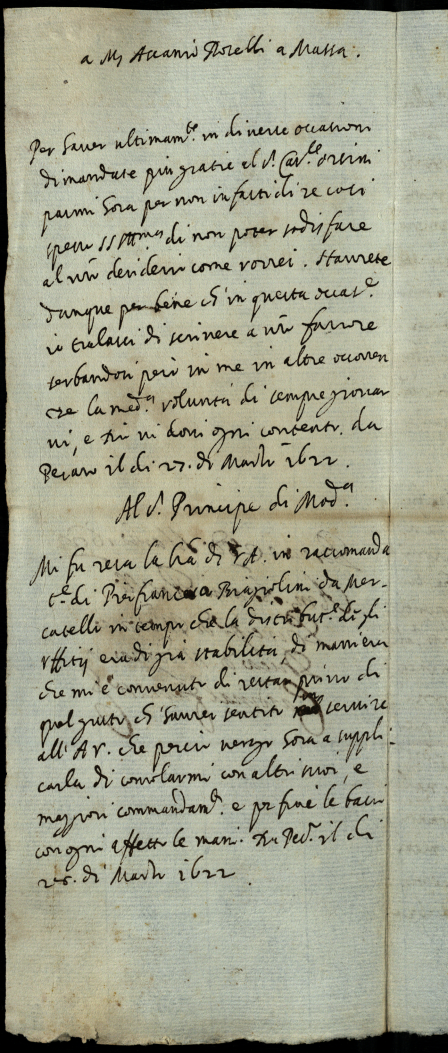 a M. Ascanio Torelli a Massa.
Per haver ultimam.te in diverse occasioni
dimandate più gratie al S.r Cav.re Orsini
parmi hora per non infastidire così
spesso di non poter sodisfare
al v̄ro desiderio come vorrei. Haurete
dunque per bene ch'in questa occas.e
io tralassi di scrivere a v̄ro favore
serbandosi però in me in altre occorren
ze la med.a voluntà di sempre giovar
vi, e Dio vi doni ogni contento. da
Pesaro il dì 27. di Marzo 1622.
Al S.r Principe di Mod.a
Mi fu resa la l̄ra di V.A. in raccomanda
t.e di Pierfrancesco Brazolini da Mer-
catelli in tempo che la distribut.e di gli
Uffitij era di già stabilita di maniera
che mi è convenuto di restar privo di
quel gusto ch'haurei sentito in servire
all'A.V. che perciò vengo hora a suppli-
carla di consolarmi con altri suoi, e
maggiori commandam.ti e per fine le bacio
con ogni affetto le mani. Di Pes.o il dì
28. di Marzo 1622